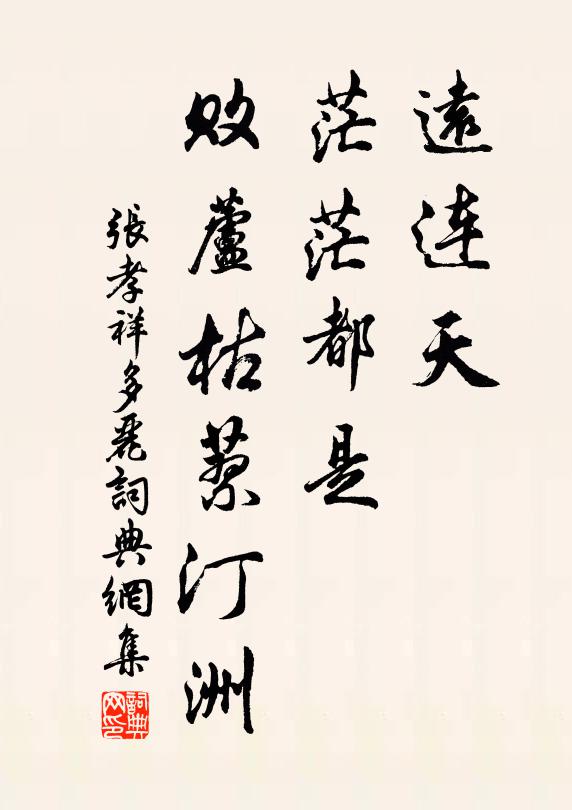 遠連天
茫茫都是
敗蘆枯蓼汀洲
張孝祥多麗詞典網集
詞典網印